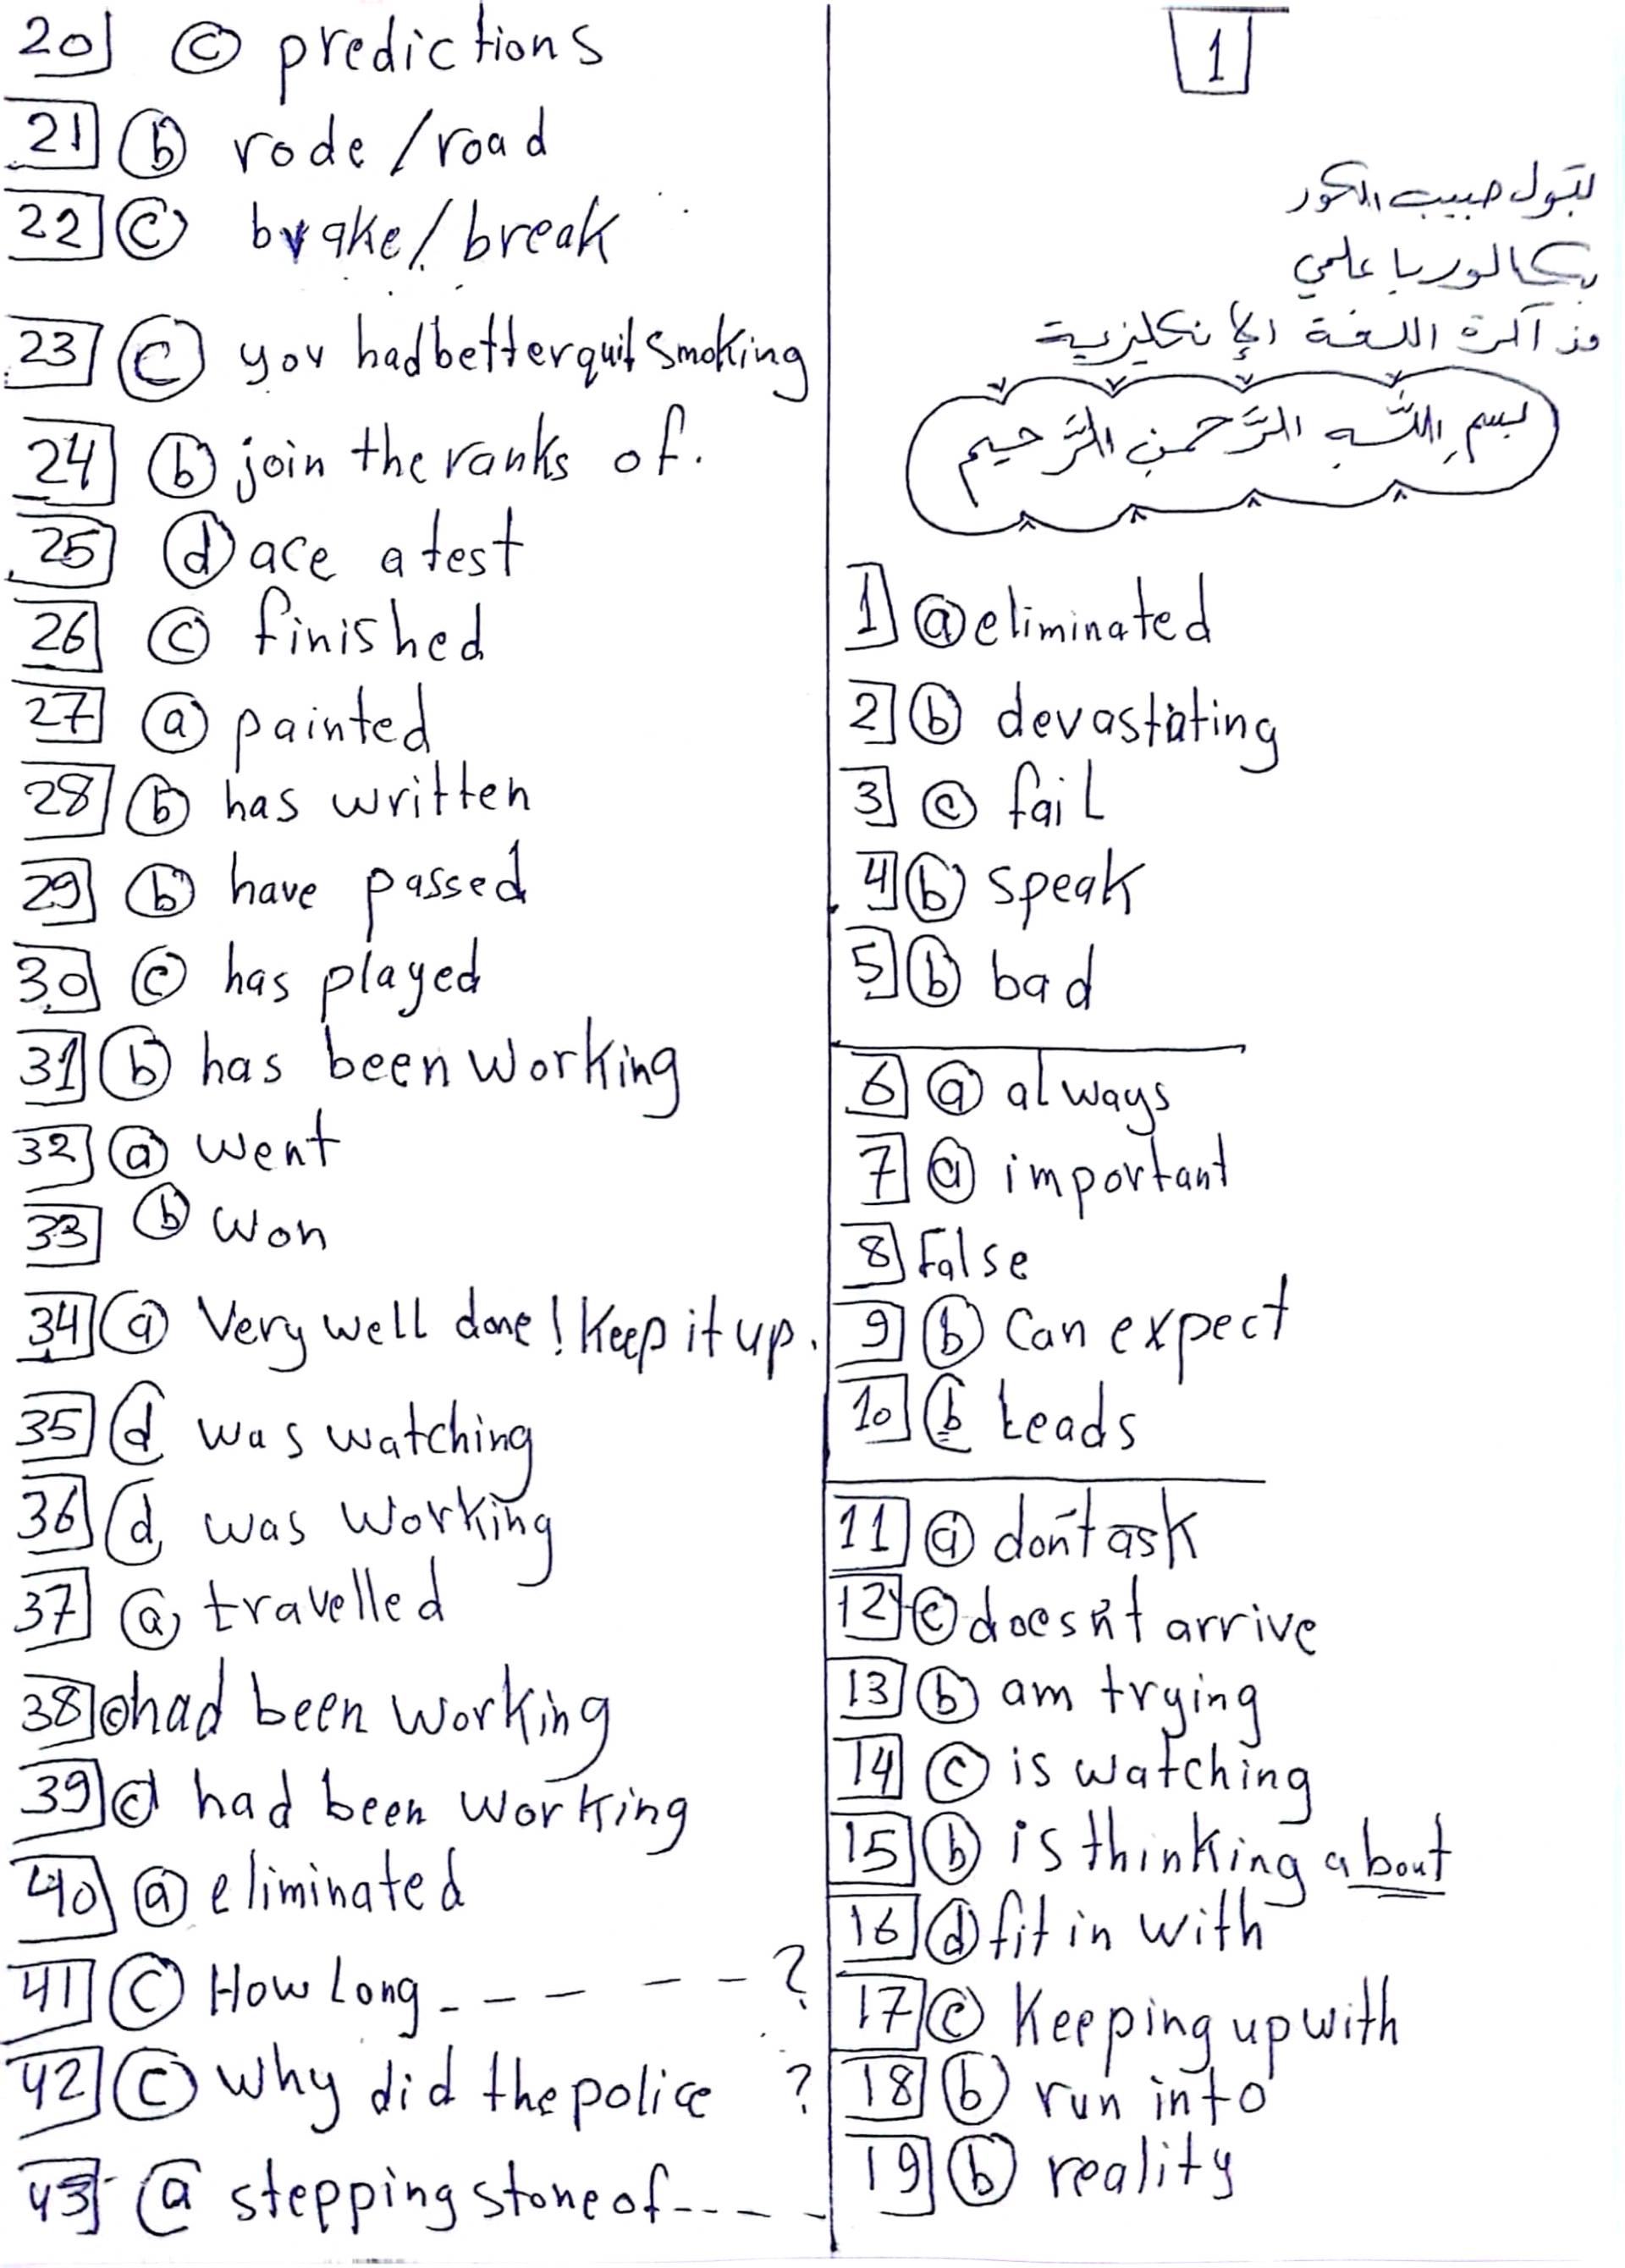 1
بتول حبيب الكور
بكالوريا علمي
مذاكرة اللغة الإنكليزية
بسم اللّه الرَّحمن الرَّحيم
1 a eliminated
2 b devastating
3 c fail
4 b speak
5 b bad
6 a always
7 a important
8 False
9 b Can expect
10 b Leads
11 a don't ask
12 c doesn't arrive
13 b am trying
14 c is watching
15 b is thinking about
16 d fit in with
17 c Keeping up with
18 b run into
19 b reality
20 c predictions
21 b rode/road
22 c brake/break
23 c you had better quit smoking
24 b join the ranks of.
25 d ace a test
26 c finished
27 a painted
28 b has written
29 b have passed
30 c has played
31 b has been working
32 a went
33 b won
34 a Very well done! Keep it up.
35 d was watching
36 d was working
37 a travelled
38 c had been working
39 d had been working
40 a eliminated
41 c How Long - - - - - ?
42 c Why did the police ?
43 a stepping stone of - - - - -